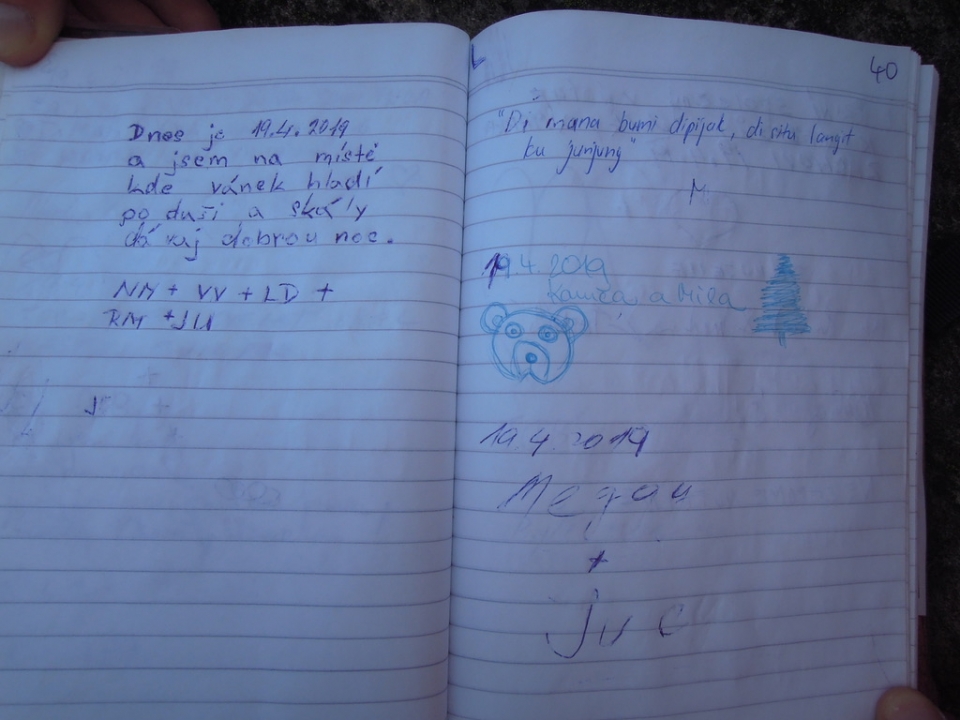 Dnes je 19.4.2019
a jsem na místě
kde vánek hladí
po duši a skály
dávaj dobrou noc.
NM + VV + LD +
RM + JU
40
"Di mana bumi dipijak, di situ langit
ku junjung"
M
19.4.2019
a Míla
19.4.2019
Megau
+